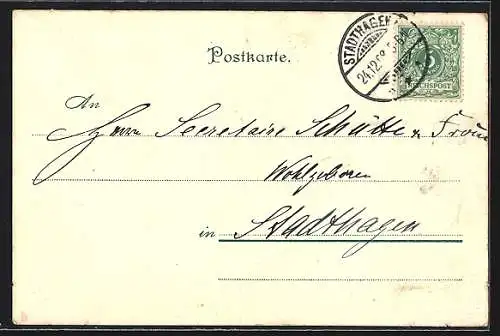 STADTHAGEN
24.12.98
5
REICHSPOST
Postkarte.
An
Herrn Secretaire Schütte & Frau
Wohlgeboren
in Stadthagen